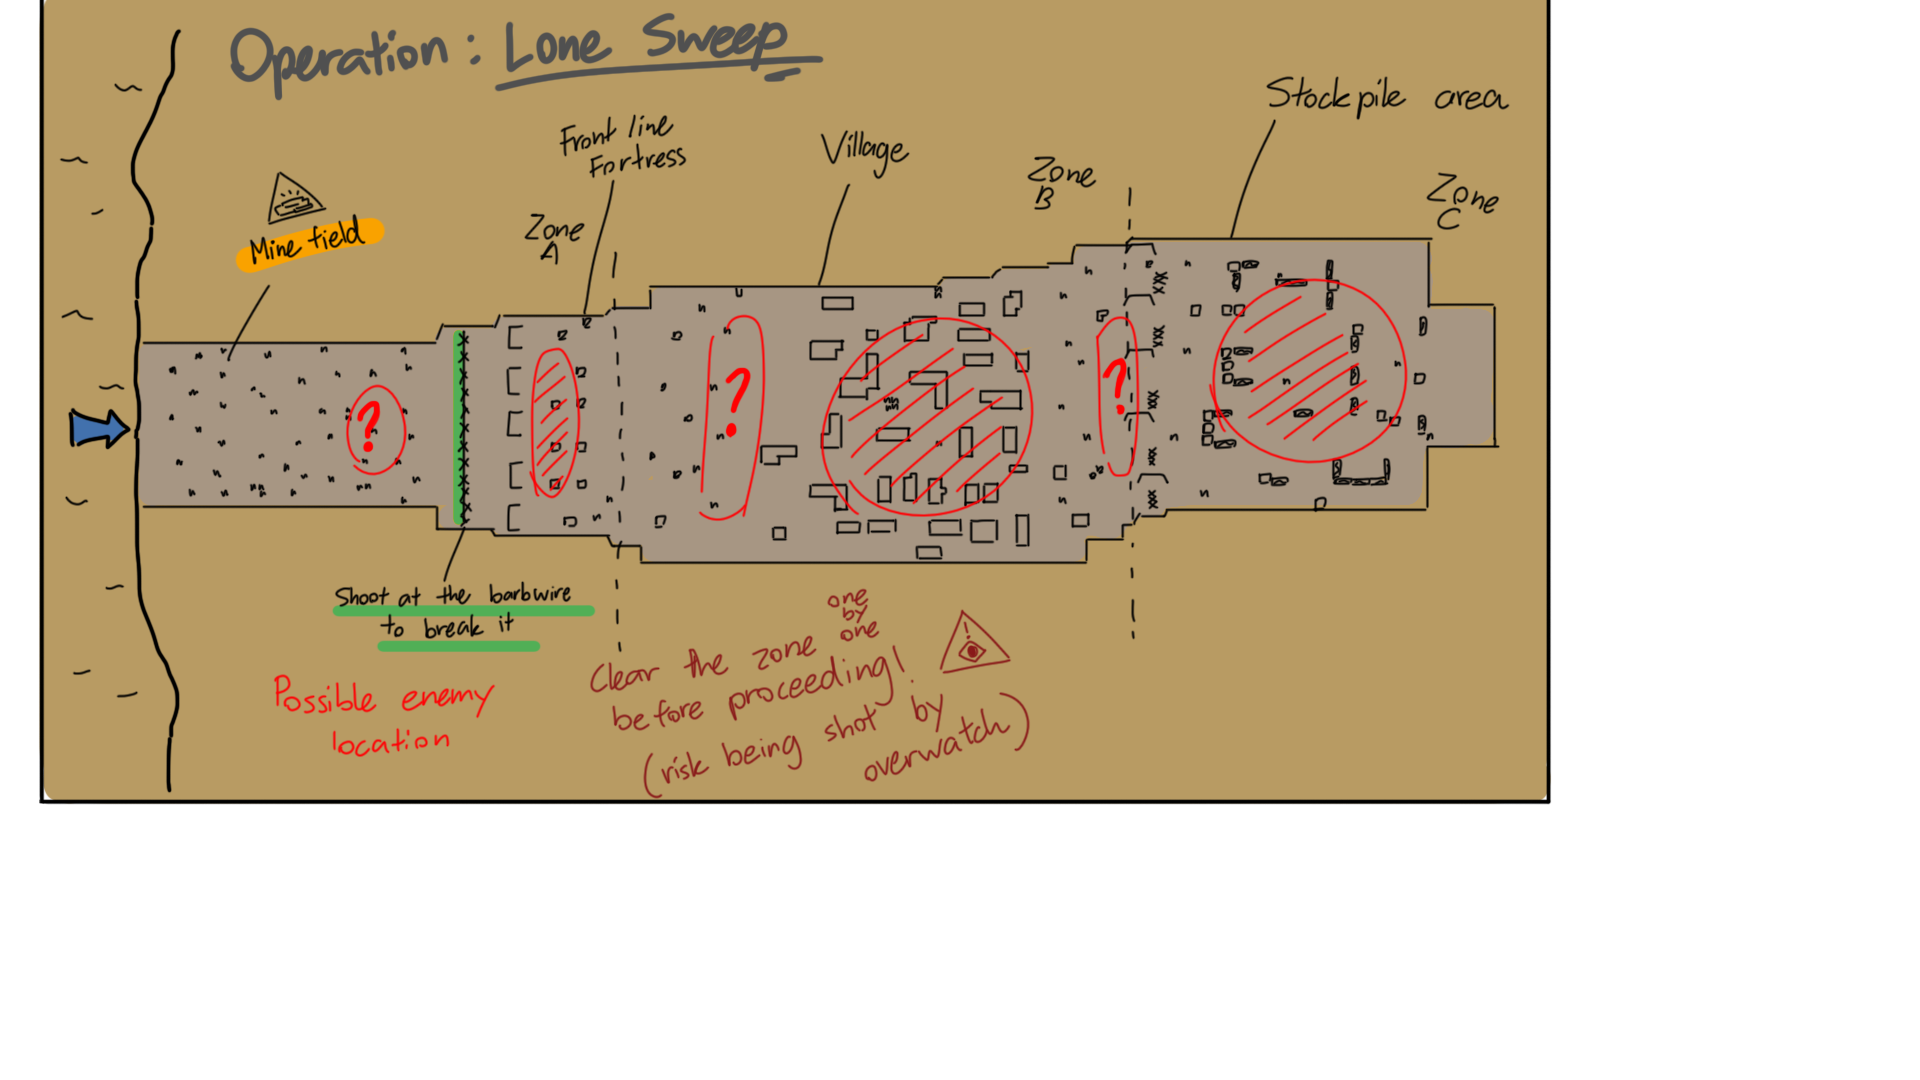 Operation: Lone Sweep
Stockpile area
Front line
Fortress
Village
Zone
B
Zone
C
Mine field
Zone
A
?
?
?
Shoot at the barbwire
to break it
Possible enemy
location
Clear the zone one by one
before proceeding!
(risk being shot by
overwatch)
!